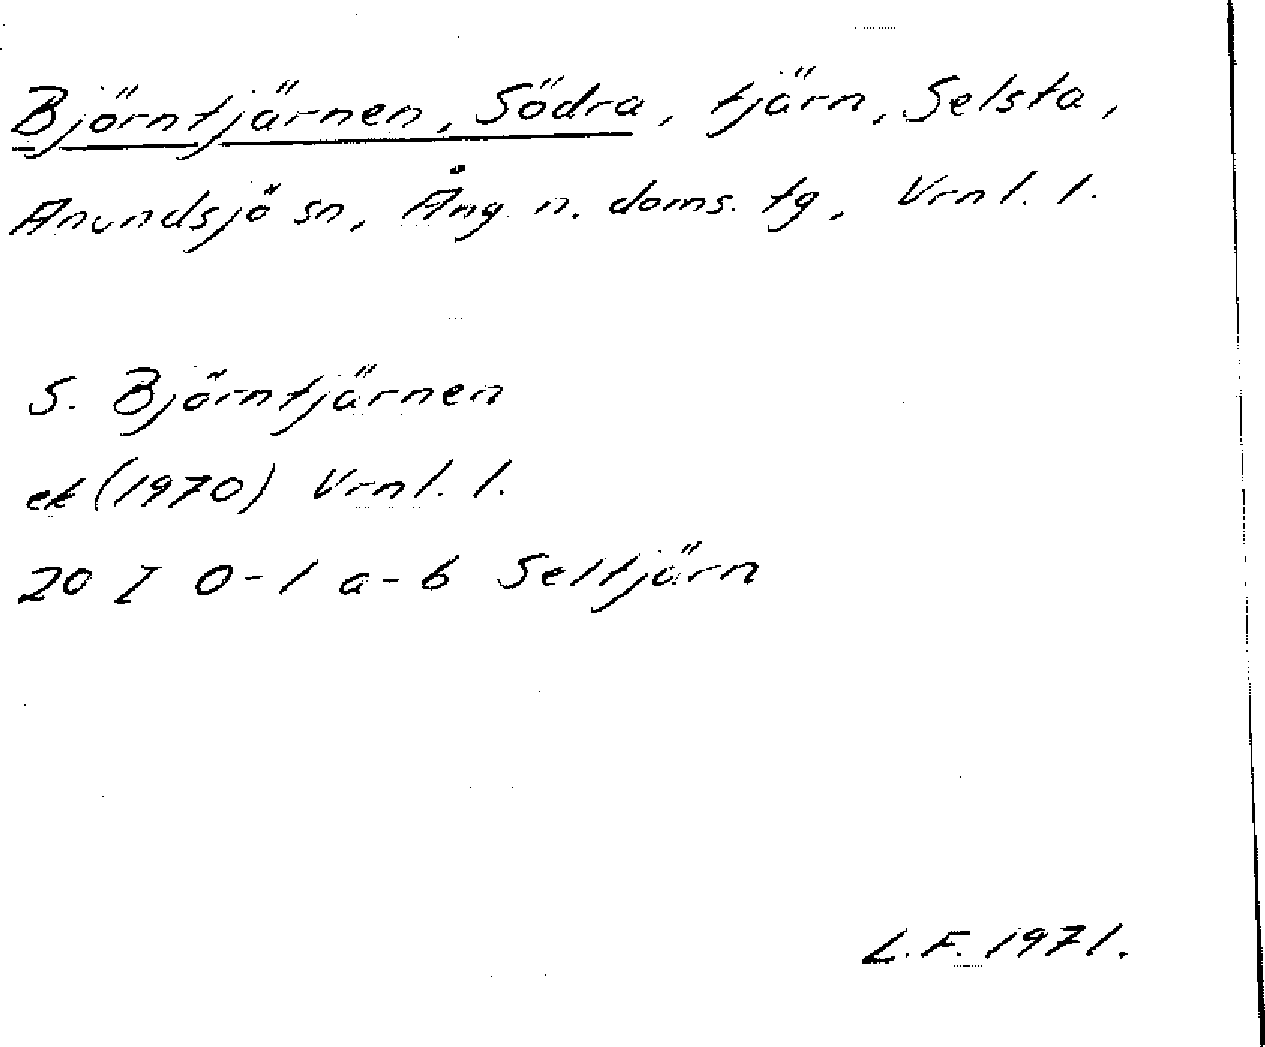 Björntjärnen, Södra, tjärn, Selsta,
Anundsjö sn, Ång. n. doms. tg, Vrnl. l.
S. Björntjärnen
ek (1970) Vrnl. l.
20 I 0-1 a-b Seltjärn
L.F. 1971.